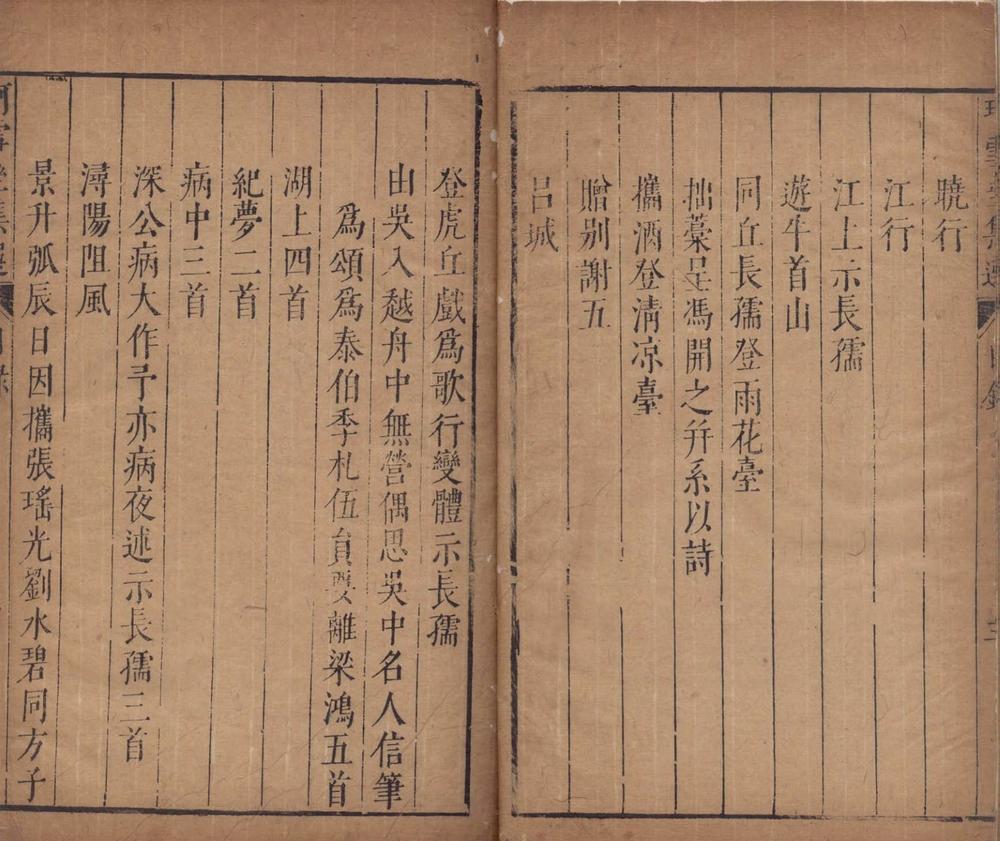 曉行
江行
江上示長孺
遊牛首山
同丘長孺登雨花臺
拙藁呈馮開之幷系以詩
攜酒登清凉臺
贈别謝五
呂城
登虎丘戲爲歌行變體示長孺
由吳入越舟中無營偶思吳中名人信筆
爲頌爲泰伯季札伍員要離梁鴻五首
湖上四首
紀夢二首
病中三首
深公病大作予亦病夜述示長孺三首
潯陽阻風
景升弧辰日因攜張瑤光劉水碧同方子